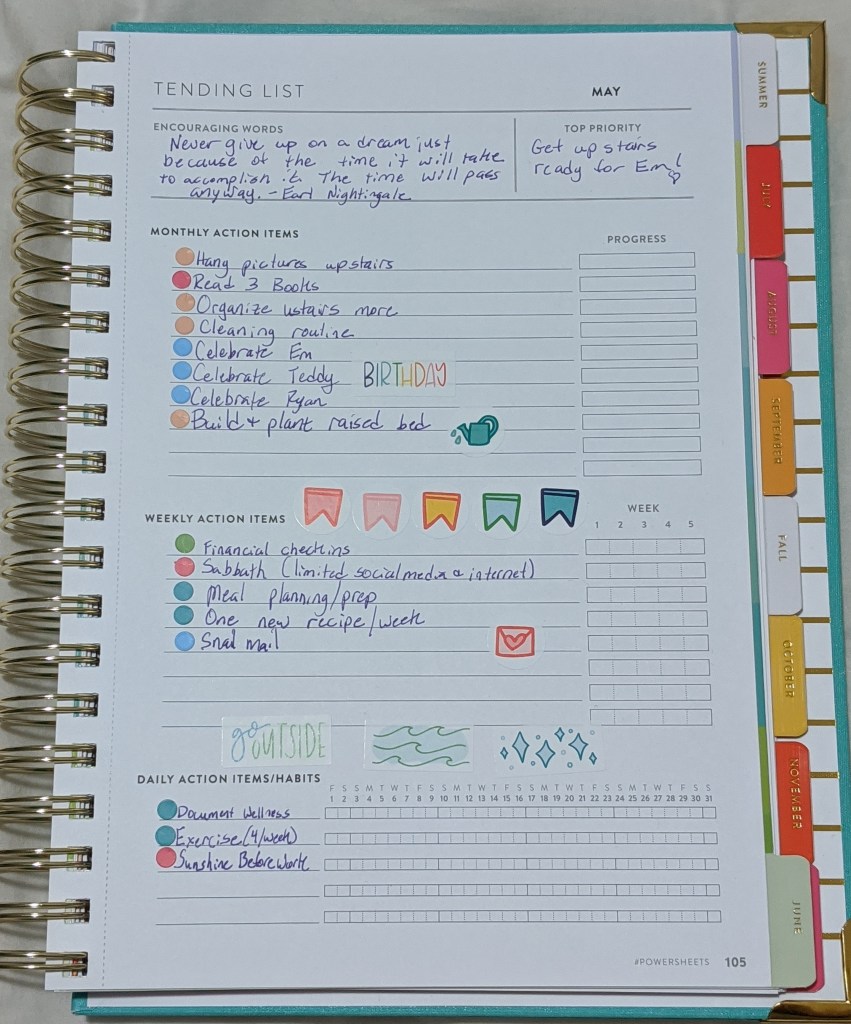 TENDING LIST
MAY
ENCOURAGING WORDS
Never give up on a dream just
because of the time it will take
to accomplish it. The time will pass
anyway. - Earl Nightingale
TOP PRIORITY
Get upstairs
ready for Em!
MONTHLY ACTION ITEMS
PROGRESS
Hang pictures upstairs
Read 3 Books
Organize ustairs more
Cleaning routine
Celebrate Em
Celebrate Teddy BIRTHDAY
Celebrate Ryan
Build + plant raised bed
WEEKLY ACTION ITEMS
WEEK
1 2 3 4 5
Financial checkins
Sabbath (limited social media & internet)
Meal planning/prep
One new recipe/week
Snail mail
go OUTSIDE
DAILY ACTION ITEMS/HABITS
F S S M T W T F S S M T W T F S S M T W T F S S M T W T F S S
1 2 3 4 5 6 7 8 9 10 11 12 13 14 15 16 17 18 19 20 21 22 23 24 25 26 27 28 29 30 31
Document Wellness
Exercise (4/week)
Sunshine Before Work
#POWERSHEETS 105
SUMMER
JULY
AUGUST
SEPTEMBER
FALL
OCTOBER
NOVEMBER
JUNE